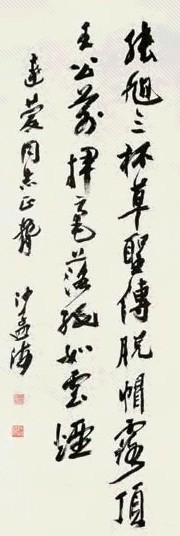 張旭三杯草聖傳脱帽露頂
王公前揮毫落紙如雲煙
達夢同志正臂 沙孟海